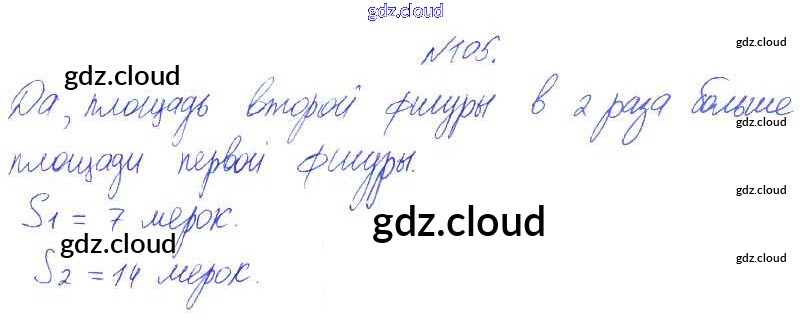 gdz.cloud
№105.
gdz.cloud
gdz.cloud
Да, площадь второй фигуры в 2 раза больше
gdz.cloud
площади первой фигуры.
gdz.cloud
S1 = 7 мерок.
gdz.cloud
gdz.cloud
S2 = 14 мерок.
gdz.cloud